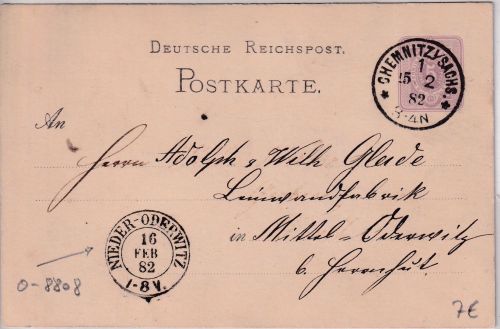 DEUTSCHE REICHSPOST.
POSTKARTE.
CHEMNITZ/SACHS.
1
15 2
82
3-4N
An
Herrn Adolph & Wilh Gleide
Leinwandfabrik
in Mittel-Oderwitz
b. Herrnhut.
NIEDER-ODERWITZ
16
FEB
82
7-8V.
0-8808
7€